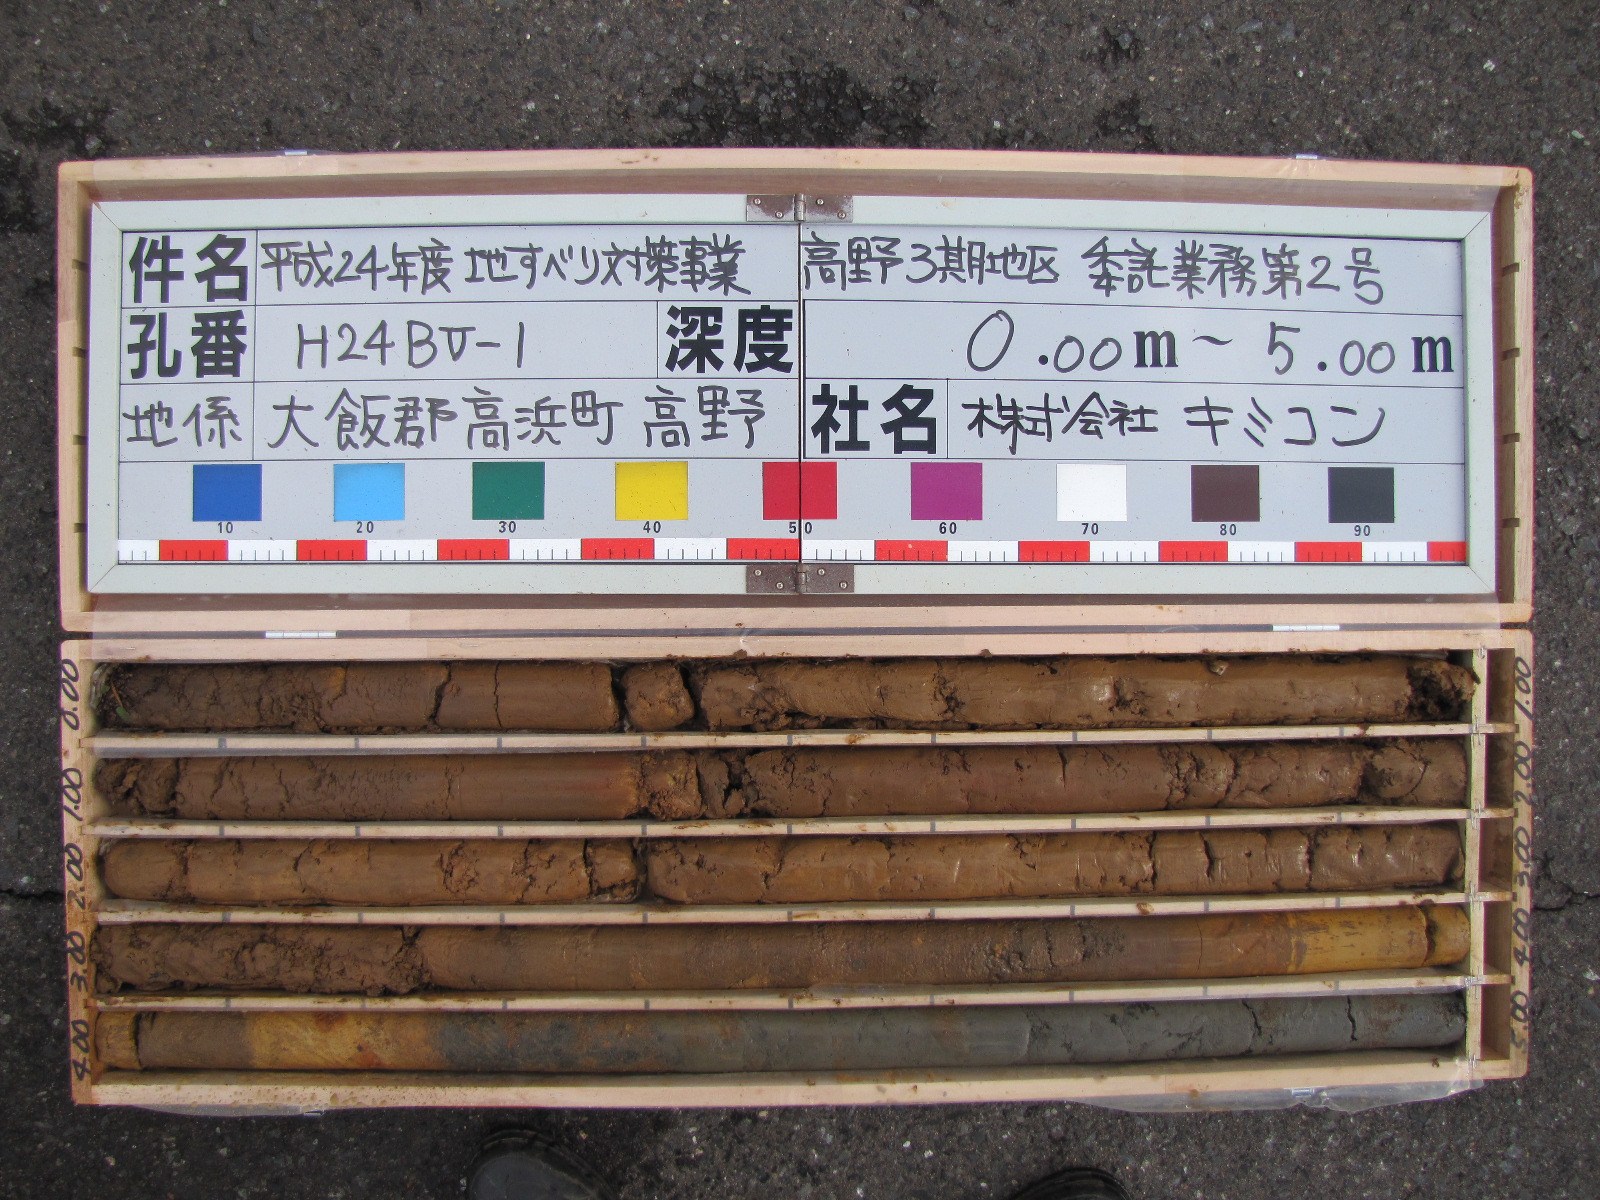 件名 平成24年度 地すべり対策事業 高野3期地区 委託業務第2号
孔番 H24BV-1 深度 0.00m~5.00m
地係 大飯郡高浜町 高野 社名 株式会社 キミコン
10 20 30 40 50 60 70 80 90
0.00 1.00
1.00 2.00
2.00 3.00
3.00 4.00
4.00 5.00